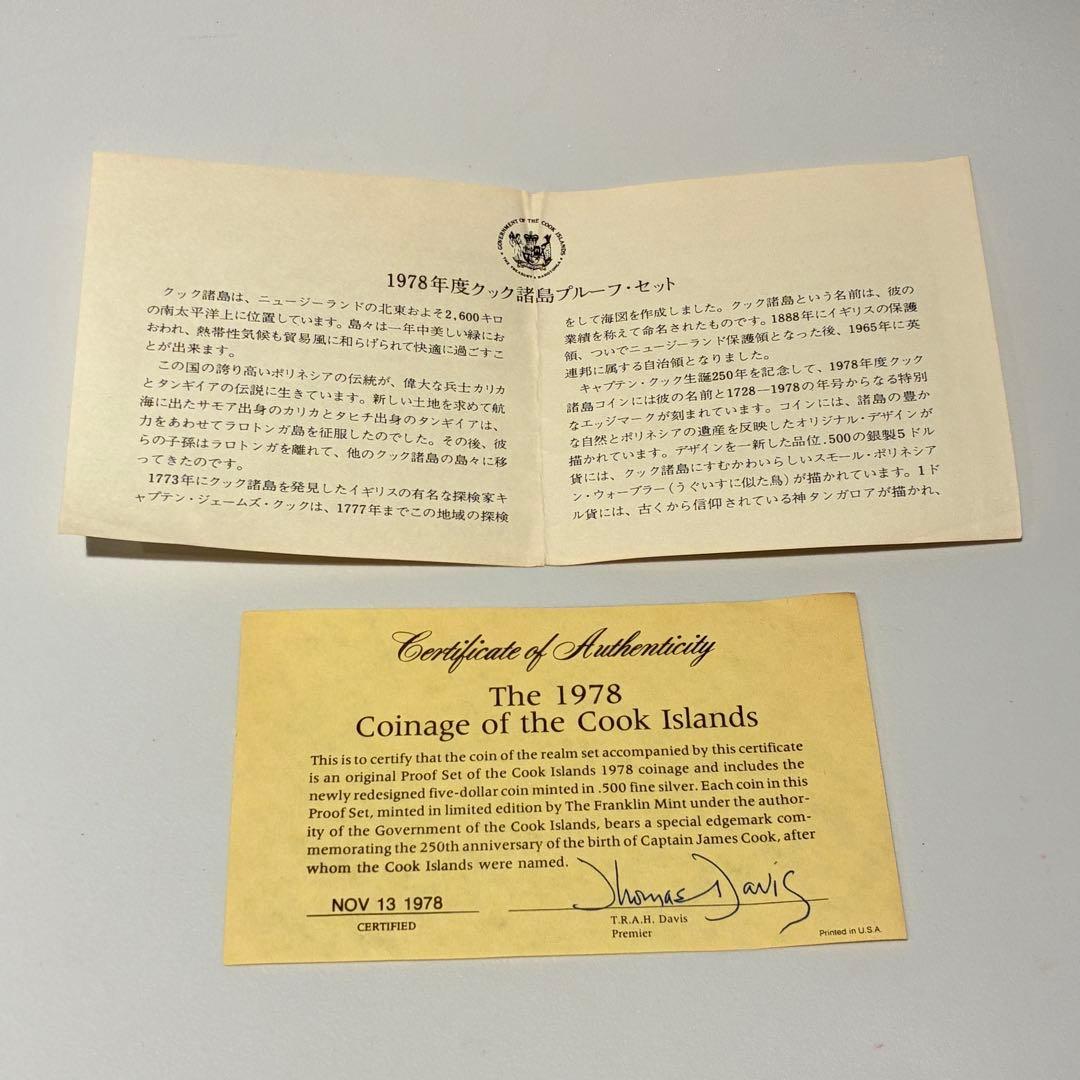 GOVERNMENT OF THE COOK ISLANDS
1978年度クック諸島プルーフ・セット
クック諸島は、ニュージーランドの北東およそ2,600キロ
の南太平洋上に位置しています。島々は一年中美しい緑にお
おわれ、熱帯性気候も貿易風に和らげられて快適に過ごすこ
とが出来ます。
この国の誇り高いポリネシアの伝統が、偉大な兵士カリカ
とタンギイアの伝説に生きています。新しい土地を求めて航
海に出たサモア出身のカリカとタヒチ出身のタンギイアは、
力をあわせてラロトンガ島を征服したのでした。その後、彼
らの子孫はラロトンガを離れて、他のクック諸島の島々に移
ってきたのです。
1773年にクック諸島を発見したイギリスの有名な探検家キ
ャプテン・ジェームズ・クックは、1777年までこの地域の探検
をして海図を作成しました。クック諸島という名前は、彼の
業績を称えて命名されたものです。1888年にイギリスの保護
領、ついでニュージーランド保護領となった後、1965年に英
連邦に属する自治領となりました。
キャプテン・クック生誕250年を記念して、1978年度クック
諸島コインには彼の名前と1728—1978の年号からなる特別
なエッジマークが刻まれています。コインには、諸島の豊か
な自然とポリネシアの遺産を反映したオリジナル・デザインが
描かれています。デザインを一新した品位.500の銀製5ドル
貨には、クック諸島にすむかわいらしいスモール・ポリネシア
ン・ウォーブラー(うぐいすに似た鳥)が描かれています。1ド
ル貨には、古くから信仰されている神タンガロアが描かれ、
Certificate of Authenticity
The 1978
Coinage of the Cook Islands
This is to certify that the coin of the realm set accompanied by this certificate
is an original Proof Set of the Cook Islands 1978 coinage and includes the
newly redesigned five-dollar coin minted in .500 fine silver. Each coin in this
Proof Set, minted in limited edition by The Franklin Mint under the author-
ity of the Government of the Cook Islands, bears a special edgemark com-
memorating the 250th anniversary of the birth of Captain James Cook, after
whom the Cook Islands were named.
Thomas Davis
NOV 13 1978
CERTIFIED
T.R.A.H. Davis
Premier
Printed in U.S.A.